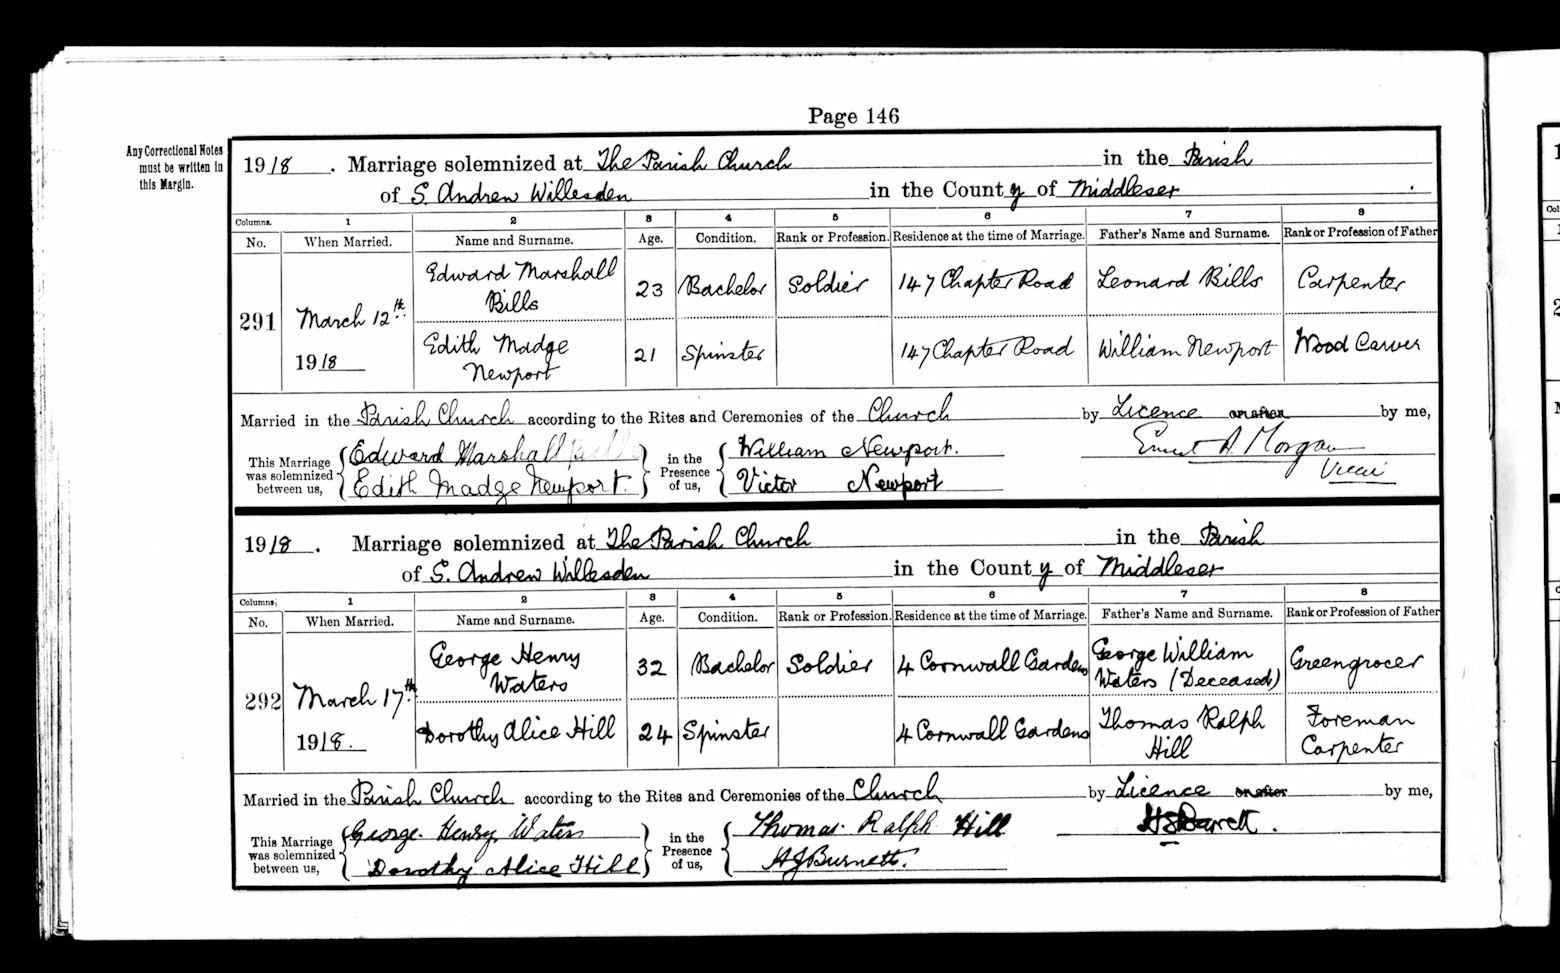 Page 146
Any Correctional Notes
must be written in
this Margin.
1918. Marriage solemnized at The Parish Church in the Parish
of S. Andrew Willesden in the County of Middlesex
Columns. 1 2 3 4 5 6 7 8
No. When Married. Name and Surname. Age. Condition. Rank or Profession. Residence at the time of Marriage. Father's Name and Surname. Rank or Profession of Father
291 March 12th 1918 Edward Marshall Bills 23 Bachelor Soldier 147 Chapter Road Leonard Bills Carpenter
Edith Madge Newport 21 Spinster 147 Chapter Road William Newport Wood Carver
Married in the Parish Church according to the Rites and Ceremonies of the Church by Licence or after by me,
This Marriage was solemnized between us, Edward Marshall Bills in the Presence of us, William Newport. Ernest A. Morgan
Edith Madge Newport. Victor Newport Vicar
1918. Marriage solemnized at The Parish Church in the Parish
of S. Andrew Willesden in the County of Middlesex
Columns; 1 2 3 4 5 6 7 8
No. When Married. Name and Surname. Age. Condition. Rank or Profession. Residence at the time of Marriage. Father's Name and Surname. Rank or Profession of Father
292 March 17th 1918. George Henry Waters 32 Bachelor Soldier 4 Cornwall Gardens George William Waters (Deceased) Greengrocer
Dorothy Alice Hill 24 Spinster 4 Cornwall Gardens Thomas Ralph Hill Foreman Carpenter
Married in the Parish Church according to the Rites and Ceremonies of the Church by Licence or after by me,
This Marriage was solemnized between us, George Henry Waters in the Presence of us, Thomas Ralph Hill
Dorothy Alice Hill A J Burnett.